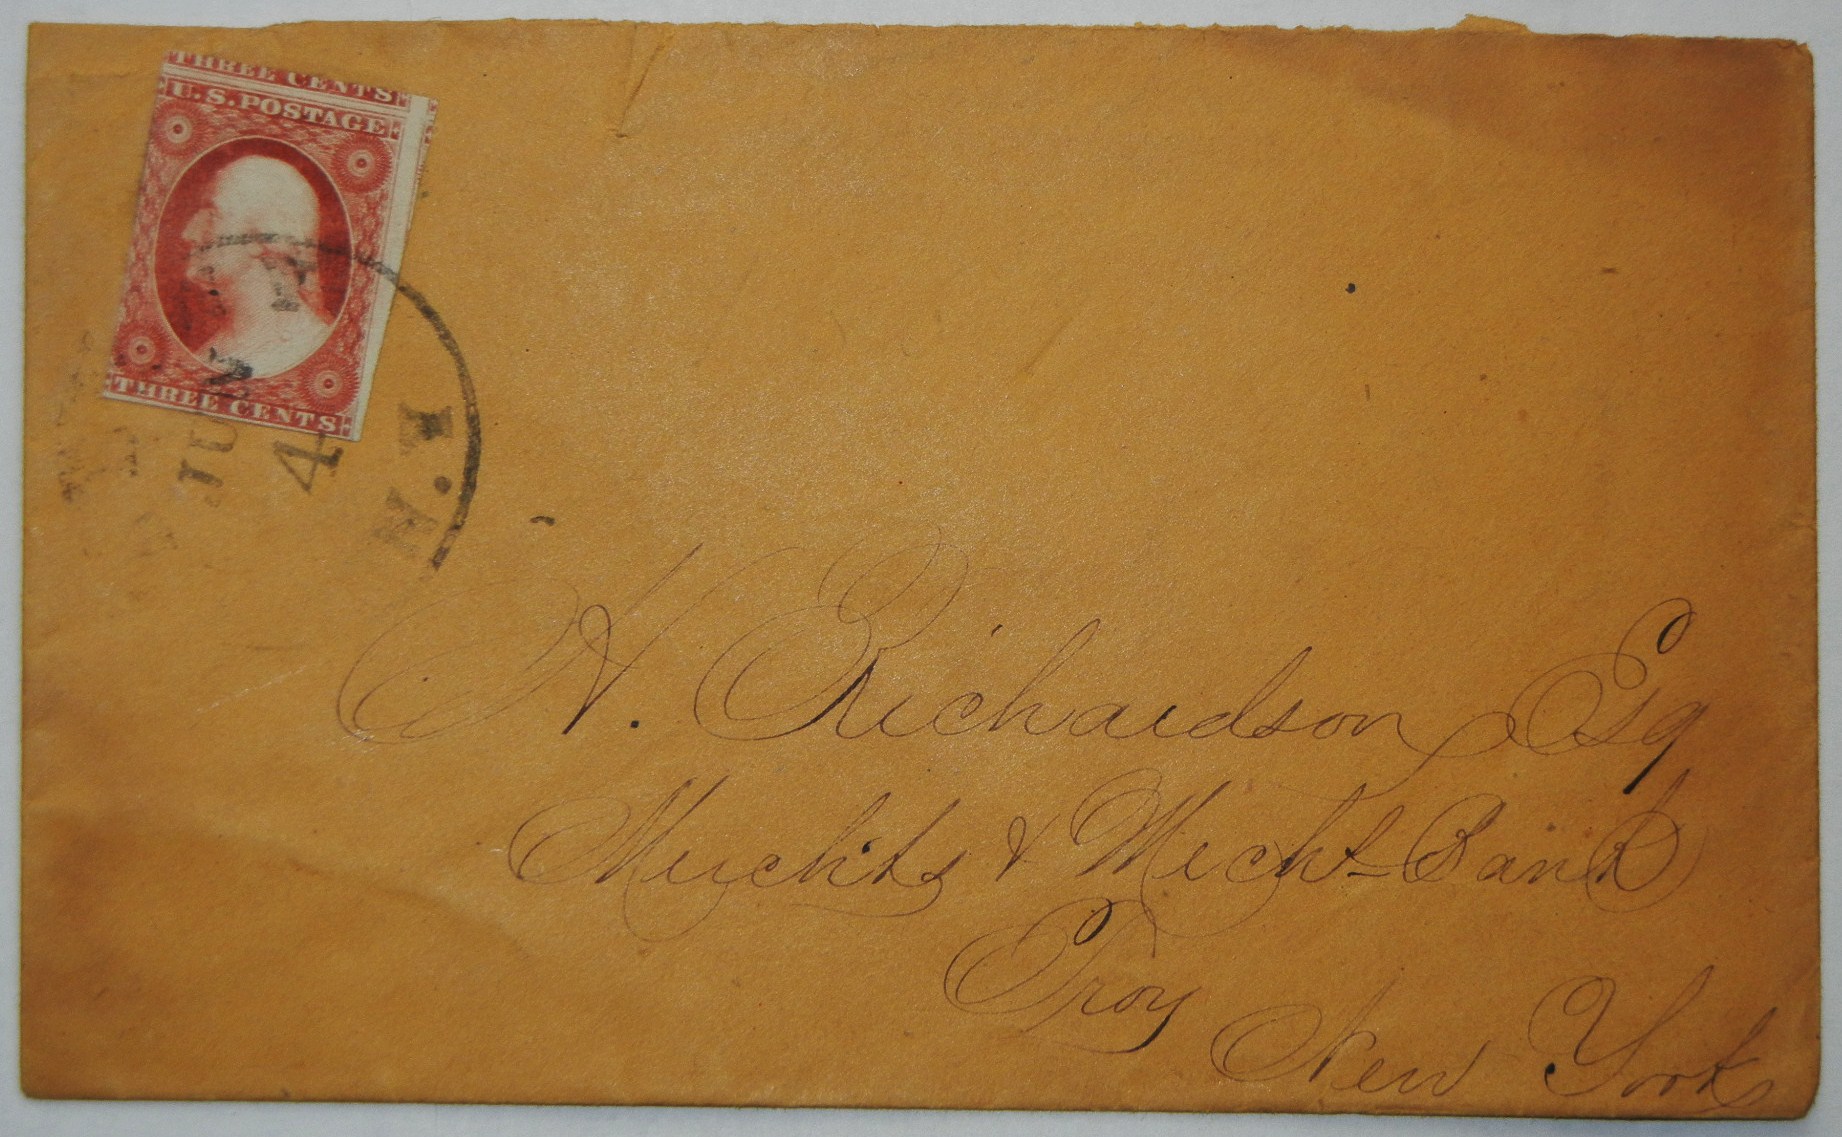 THREE CENTS
U.S.POSTAGE
THREE CENTS
JUN
4
N.Y
H. Richardson Esq
Merchts & Mechs Bank
Troy
New York